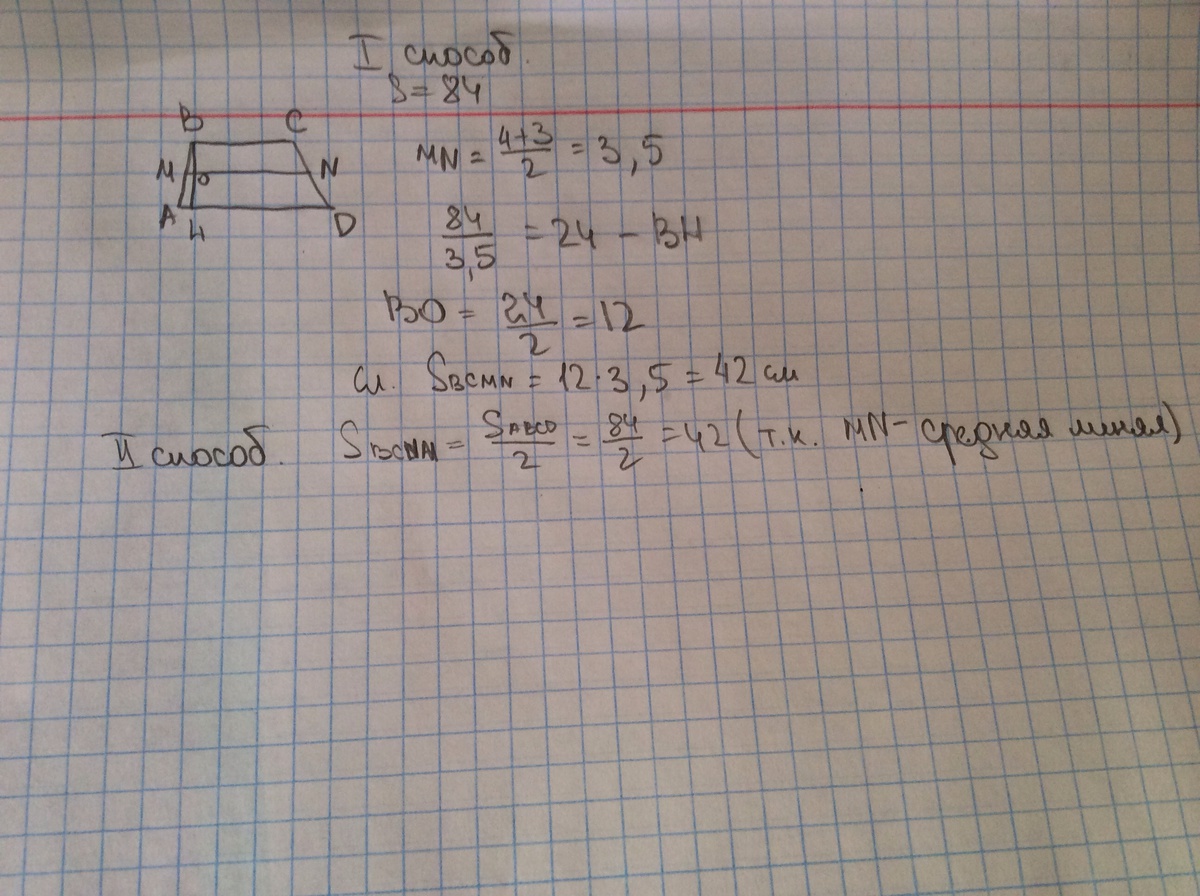 I способ.
S = 84
B C
M O N
A H D
MN = \frac{4+3}{2} = 3,5
\frac{84}{3,5} = 24 - BH
BO = \frac{24}{2} = 12
Сл. S_{BCMN} = 12 · 3,5 = 42 см
II способ. S_{BCNM} = \frac{S_{ABCD}}{2} = \frac{84}{2} = 42 (т.к. MN - средняя линия)